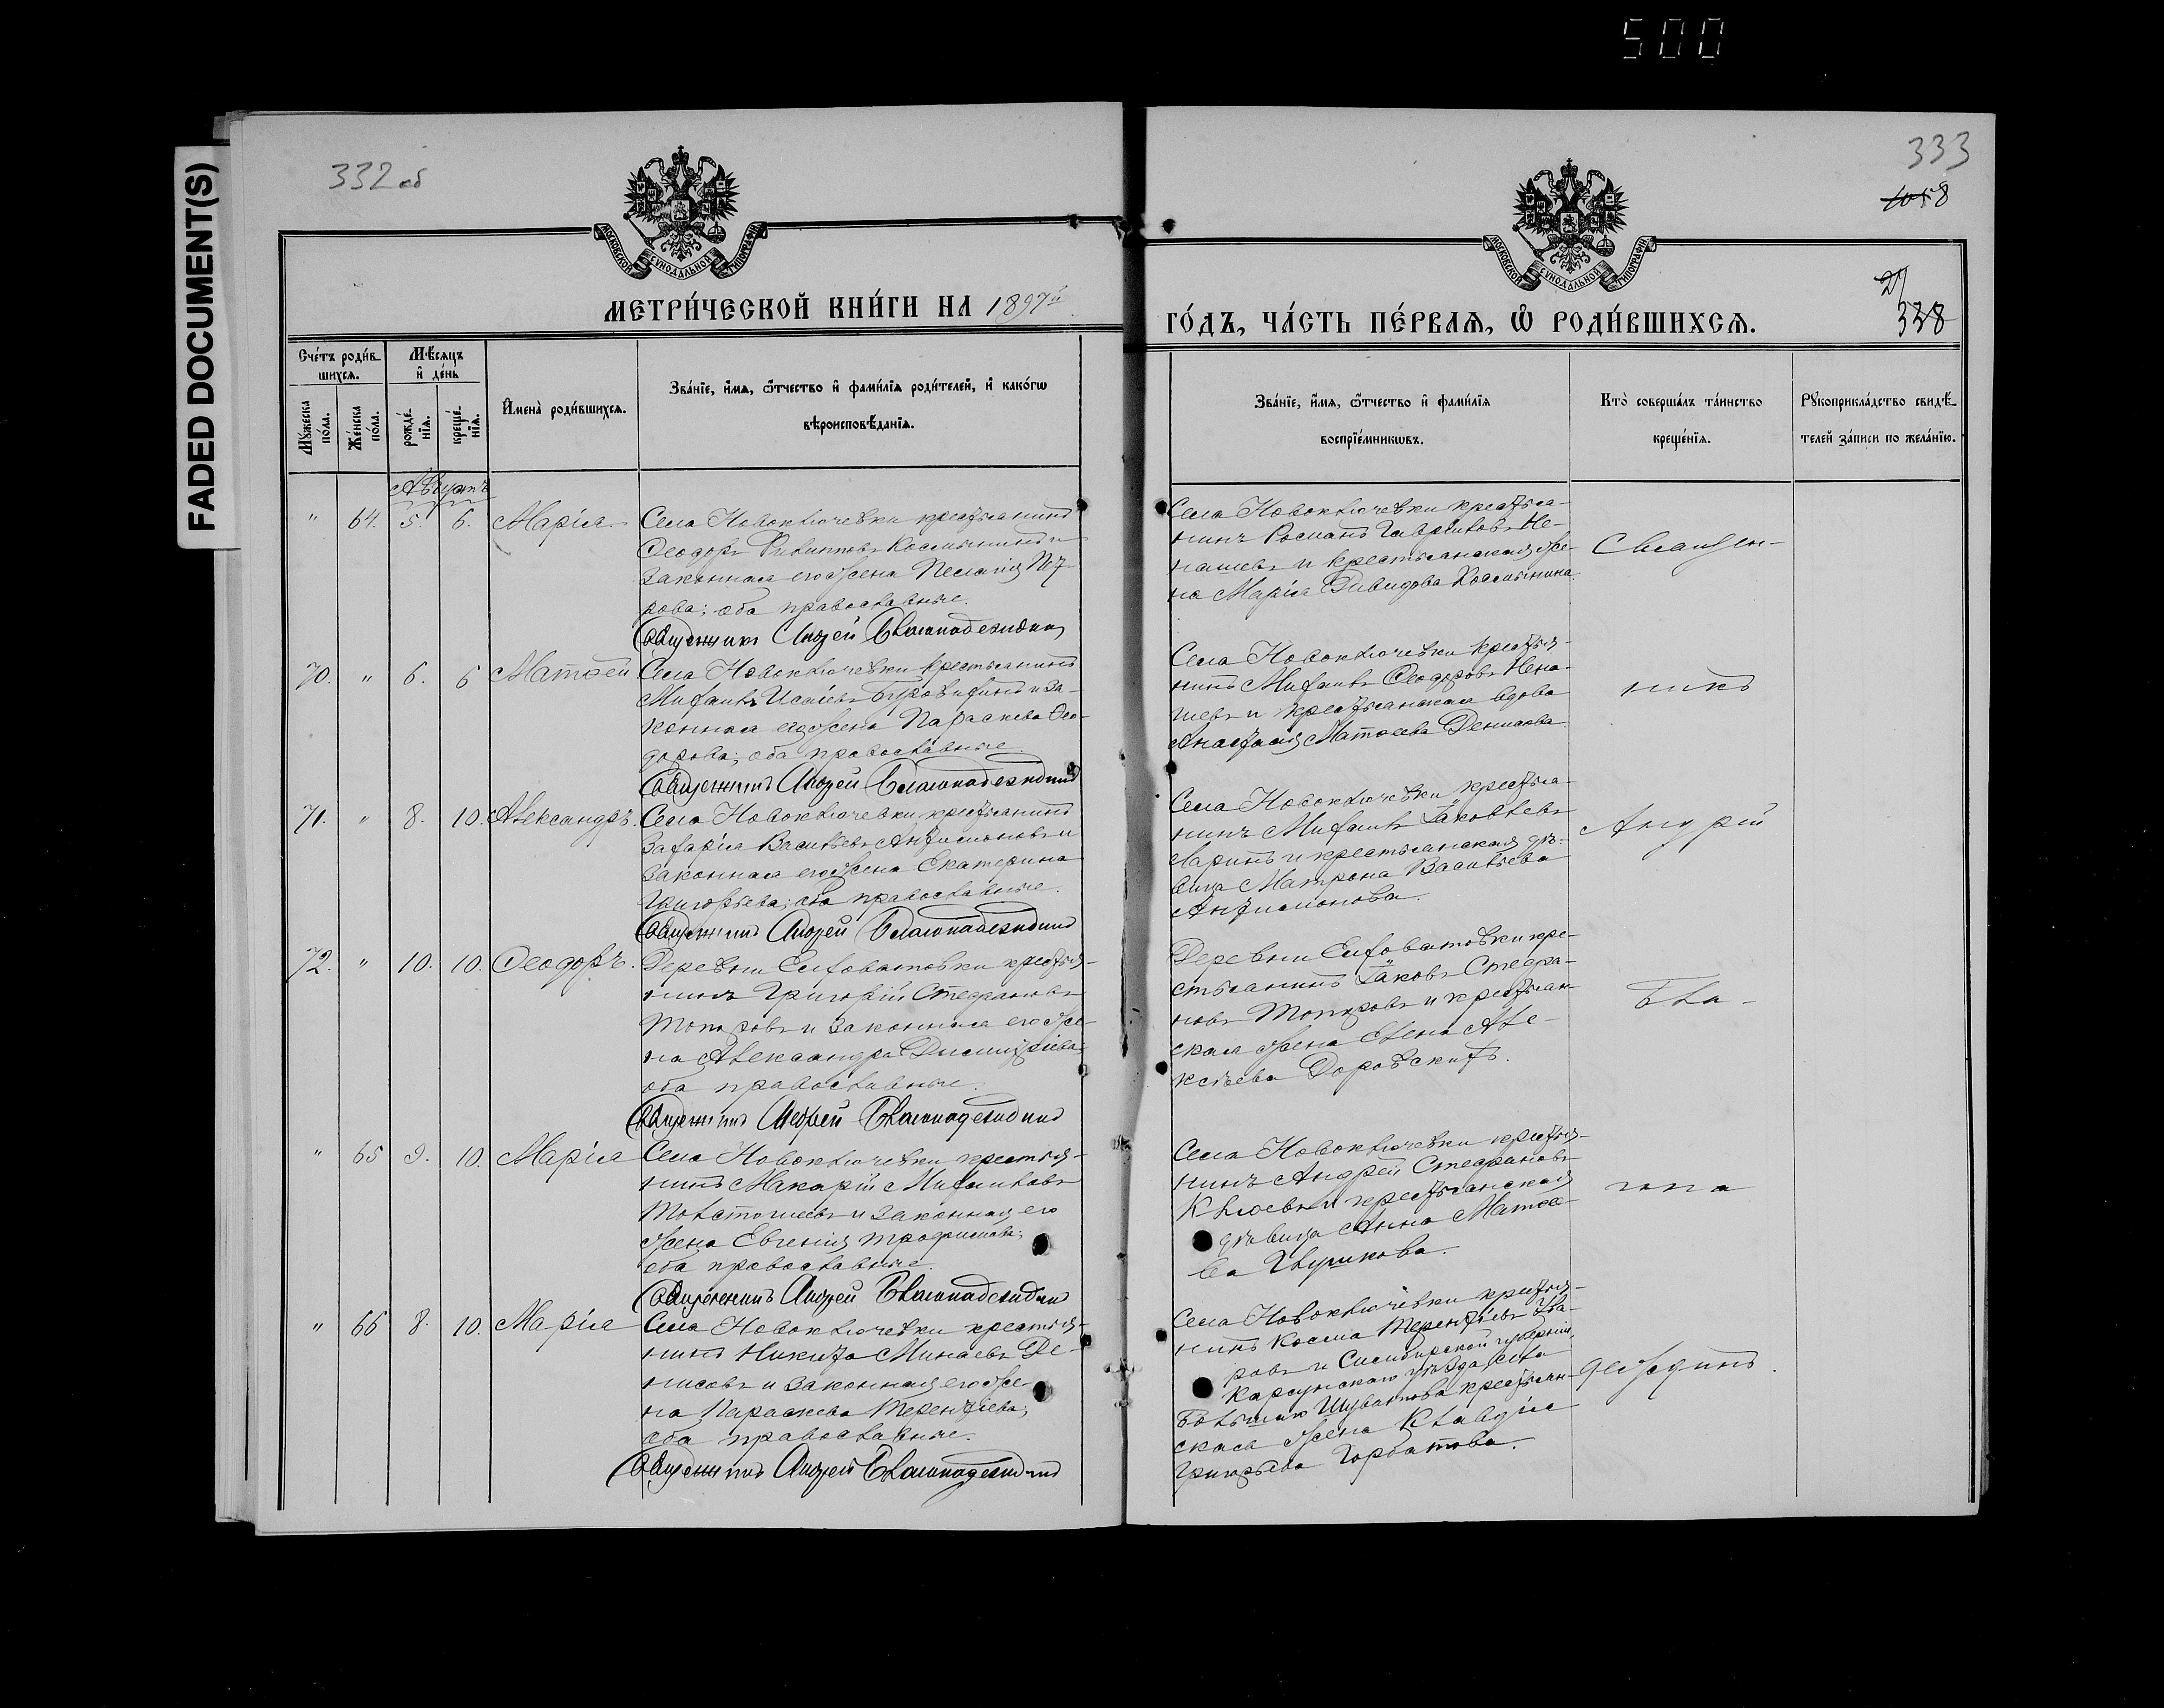 500
FADED DOCUMENT(S)
332 об
333
1058
27
338
МОСКОВСКОЙ СУНОДАЛЬНОЙ ТИПОГРАФІИ
МОСКОВСКОЙ СУНОДАЛЬНОЙ ТИПОГРАФІИ
МЕТРИ́ЧЕСКОЙ КНИ́ГИ НА 1897й
ГО́ДЪ, ЧА́СТЬ ПЕ́РВАЯ, Ѿ РОДИ́ВШИХСЯ.
Сче́тъ роди́в-
шихся.
Мꙋ́жеска по́ла.
Же́нска по́ла.
Мѣ́сяцъ и де́нь
рожде́-нїя.
креще́-нїя.
И҆мена̀ роди́вшихся.
Зва́нїе, и҆́мя, ѻ҆́тчество и҆ фами́лїя роди́телей, и҆ како́гѡ
вѣроисповѣ́данїя.
Зва́нїе, и҆́мя, ѻ҆́тчество и҆ фами́лїя
воспрїе́мникѡвъ.
Кто̀ соверша́лъ та́инство
креще́нїя.
Рꙋкоприкла́дство свидѣ́-
телей за́писи по жела́нїю.
Августъ
" 64. 5. 6. Марія
Села Новоключевки крестьянинъ
Ѳеодоръ Филипповъ Космынинъ и
законная его жена Пелагія Пет-
рова; оба православные.
Священникъ Андрей Благонадеждинъ
Села Новоключевки крестья-
нинъ Романъ Гавриловъ Не-
нашевъ и крестьянская же-
на Марія Давидова Космынина.
Священ-
70. " 6. 6 Матѳей
Села Новоключевки крестьянинъ
Михаилъ Исаіевъ и за-
конная его жена Параскева Ѳео-
дорова; оба православные.
Священникъ Андрей Благонадеждинъ
Села Новоключевки крестья-
нинъ Михаилъ Ѳеодоровъ Нена-
шевъ и крестьянская вдова
Анастасія Матѳеева Денисова
никъ
71. " 8. 10. Александръ.
Села Новоключевки крестьянинъ
Захарія Васильевъ Анфимоновъ и
законная его жена Екатерина
Григорьева; оба православные.
Священникъ Андрей Благонадеждинъ
Села Новоключевки крестья-
нинъ Михаилъ Іаковлевъ
Ларинъ и крестьянская дѣ-
вица Матрона Васильева
Анфимонова.
Андрей
72. " 10. 10. Ѳеодоръ.
Деревни Елховатовки крестья-
нинъ Григорій Стефановъ
Топоровъ и законная его же-
на Александра Димитріева;
оба православные.
Священникъ Андрей Благонадеждинъ
Деревни Елховатовки кре-
стьянинъ Іаковъ Стефа-
новъ Топоровъ и крестьян-
ская жена Елена Але-
ксѣева Доровскихъ.
Бла-
" 65 9. 10. Марія
Села Новоключевки крестья-
нинъ Макарій Михаиловъ
Толстошеевъ и законная его
жена Евгенія Трофимова;
оба православные.
Священникъ Андрей Благонадеждинъ
Села Новоключевки крестья-
нинъ Андрей Стефановъ
Клюевъ и крестьянская
дѣвица Анна Матѳее-
ва Глушкова.
гона
" 66 8. 10. Марія
Села Новоключевки крестья-
нинъ Никита Минаевъ Де-
нисовъ и законная его же-
на Параскева Терентіева;
оба православные.
Священникъ Андрей Благонадеждинъ
Села Новоключевки крестья-
нинъ Косма Терентіевъ Ува-
ровъ и Симбирской губерніи,
Карсунскаго уѣзда, села
Большаго Шуватова крестьян-
ская жена Клавдія
Григорьева Горбатова.
деждинъ.